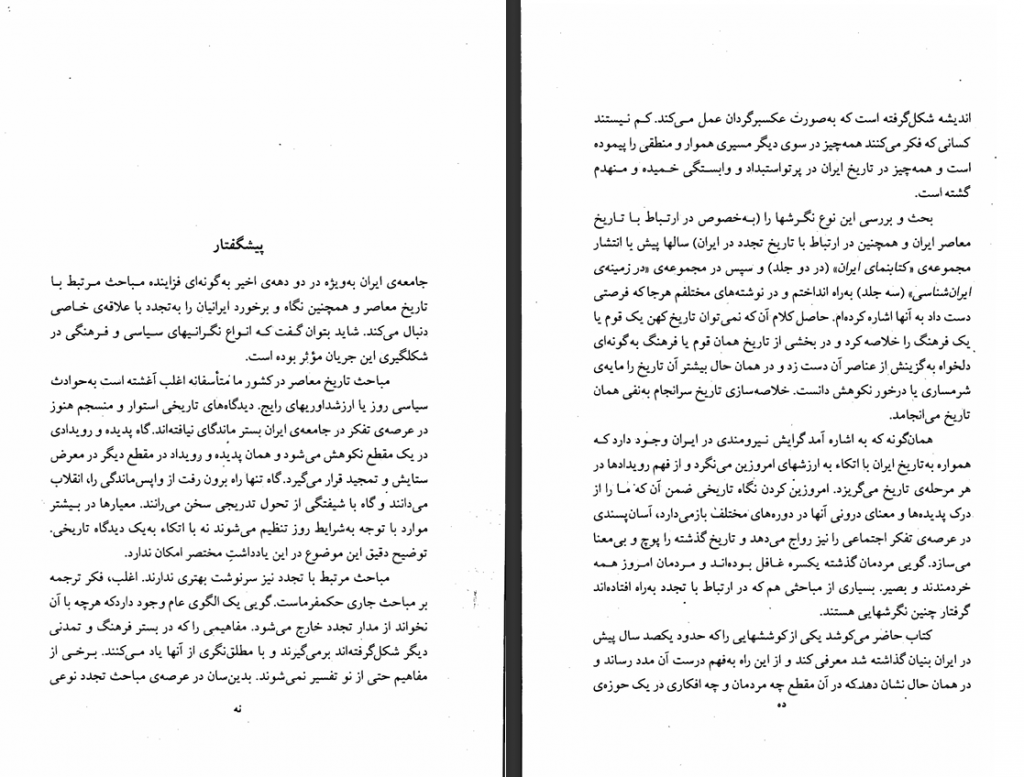 پیشگفتار
جامعه‌ی ایران به‌ویژه در دو دهه‌ی اخیر به‌گونه‌ای فزاینده مباحث مرتبط با
تاریخ معاصر و همچنین نگاه و برخورد ایرانیان را به‌تجدد با علاقه‌ی خاصی
دنبال می‌کند. شاید بتوان گفت که انواع نگرانیهای سیاسی و فرهنگی در
شکلگیری این جریان مؤثر بوده است.
مباحث تاریخ معاصر در کشور ما متأسفانه اغلب آغشته است به‌حوادث
سیاسی روز یا ارزشداوریهای رایج. دیدگاه‌های تاریخی استوار و منسجم هنوز
در عرصه‌ی تفکر در جامعه‌ی ایران بستر ماندگای نیافته‌اند. گاه پدیده و رویدادی
در یک مقطع نکوهش می‌شود و همان پدیده و رویداد در مقطع دیگر در معرض
ستایش و تمجید قرار می‌گیرد. گاه تنها راه برون رفت از واپس‌ماندگی را، انقلاب
می‌دانند و گاه با شیفتگی از تحول تدریجی سخن می‌رانند. معیارها در بیشتر
موارد با توجه به‌شرایط روز تنظیم می‌شوند نه با اتکاء به‌یک دیدگاه تاریخی.
توضیح دقیق این موضوع در این یادداشتِ مختصر امکان ندارد.
مباحث مرتبط با تجدد نیز سرنوشت بهتری ندارند. اغلب، فکر ترجمه
بر مباحث جاری حکمفرماست. گویی یک الگوی عام وجود دارد که هرچه با آن
نخواند از مدار تجدد خارج می‌شود. مفاهیمی را که در بستر فرهنگ و تمدنی
دیگر شکل‌گرفته‌اند برمی‌گیرند و با مطلق‌نگری از آنها یاد می‌کنند. برخی از
مفاهیم حتی از نو تفسیر نمی‌شوند. بدین‌سان در عرصه‌ی مباحث تجدد نوعی
نه
اندیشه شکل‌گرفته است که به‌صورت عکسبرگردان عمل می‌کند. کم نیستند
کسانی که فکر می‌کنند همه‌چیز در سوی دیگر مسیری هموار و منطقی را پیموده
است و همه‌چیز در تاریخ ایران در پرتو استبداد و وابستگی خمیده و منهدم
گشته است.
بحث و بررسی این نوع نگرشها را (به‌خصوص در ارتباط با تاریخ
معاصر ایران و همچنین در ارتباط با تاریخ تجدد در ایران) سالها پیش با انتشار
مجموعه‌ی «کتابنمای ایران» (در دو جلد) و سپس در مجموعه‌ی «در زمینه‌ی
ایران‌شناسی» (سه جلد) به‌راه انداختم و در نوشته‌های مختلفم هرجا که فرصتی
دست داد به آنها اشاره کرده‌ام. حاصل کلام آن‌که نمی‌توان تاریخ کهن یک قوم یا
یک فرهنگ را خلاصه کرد و در بخشی از تاریخ همان قوم یا فرهنگ به‌گونه‌ای
دلخواه به‌گزینش از عناصر آن دست زد و در همان حال بیشتر آن تاریخ را مایه‌ی
شرمساری یا درخور نکوهش دانست. خلاصه‌سازی تاریخ سرانجام به‌نفی همان
تاریخ می‌انجامد.
همان‌گونه که به اشاره آمد گرایش نیرومندی در ایران وجود دارد که
همواره به‌تاریخ ایران با اتکاء به ارزشهای امروزین می‌نگرد و از فهم رویدادها در
هر مرحله‌ی تاریخ می‌گریزد. امروزین کردن نگاه تاریخی ضمن آن‌که ما را از
درک پدیده‌ها و معنای درونی آنها در دوره‌های مختلف بازمی‌دارد، آسان‌پسندی
در عرصه‌ی تفکر اجتماعی را نیز رواج می‌دهد و تاریخ گذشته را پوچ و بی‌معنا
می‌سازد. گویی مردمان گذشته یکسره غافل بوده‌اند و مردمان امروز همه
خردمندند و بصیر. بسیاری از مباحثی هم که در ارتباط با تجدد به‌راه افتاده‌اند
گرفتار چنین نگرشهایی هستند.
کتاب حاضر می‌کوشد یکی از کوششهایی را که حدود یکصد سال پیش
در ایران بنیان گذاشته شد معرفی کند و از این راه به‌فهم درست آن مدد رساند و
در همان حال نشان دهد که در آن مقطع چه مردمان و چه افکاری در یک حوزه‌ی
ده